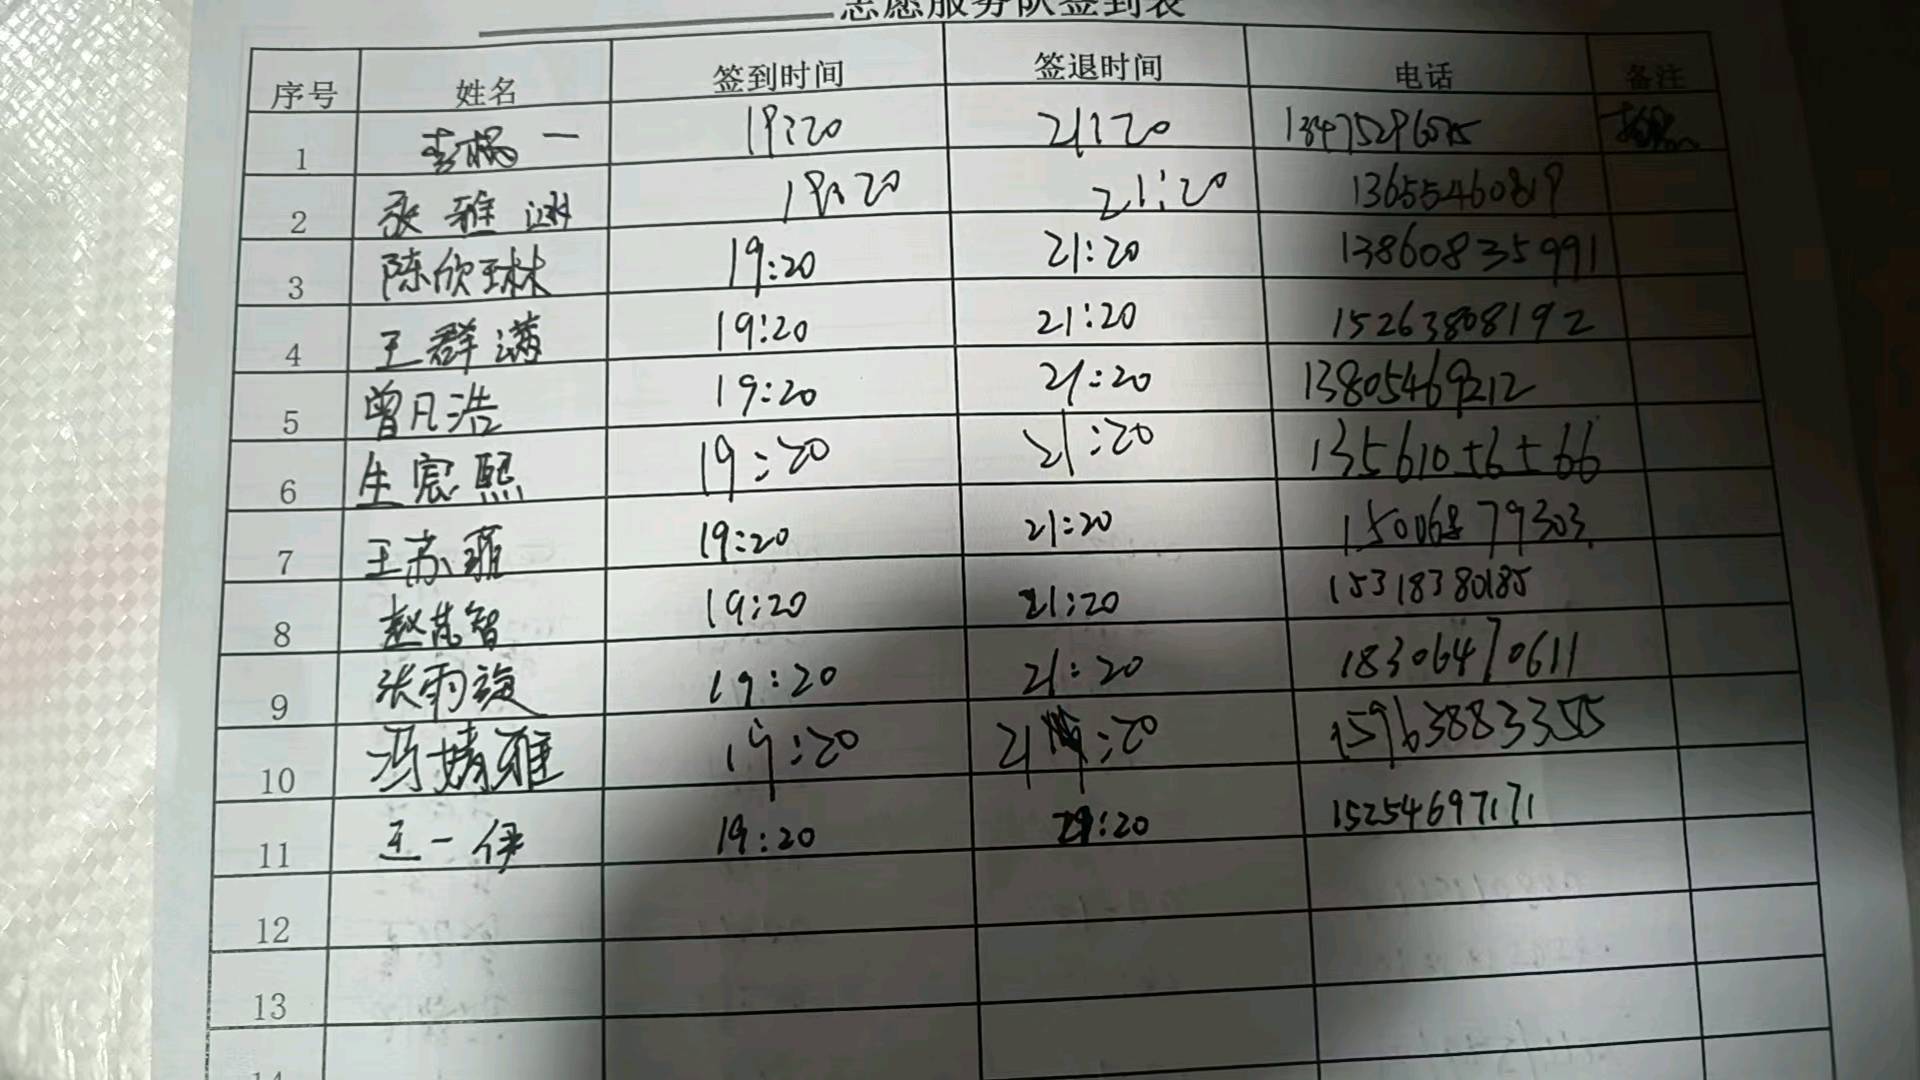 志愿服务队签到表
序号 姓名 签到时间 签退时间 电话 备注
1 李 一 19:20 21:20
2 张雅淋 19:20 21:20 13655460819
3 陈欣琳 19:20 21:20 13860835991
4 王群满 19:20 21:20 15263808192
5 曾凡浩 19:20 21:20 13805469212
6 生宸熙 19:20 21:20
7 王苏菲 19:20 21:20 15006879303
8 赵 智 19:20 21:20 15318380185
9 张雨旋 19:20 21:20 18306470611
10 冯婧雅 19:20 21:20 15963883355
11 王一伊 19:20 21:20 15254697171
12
13
14